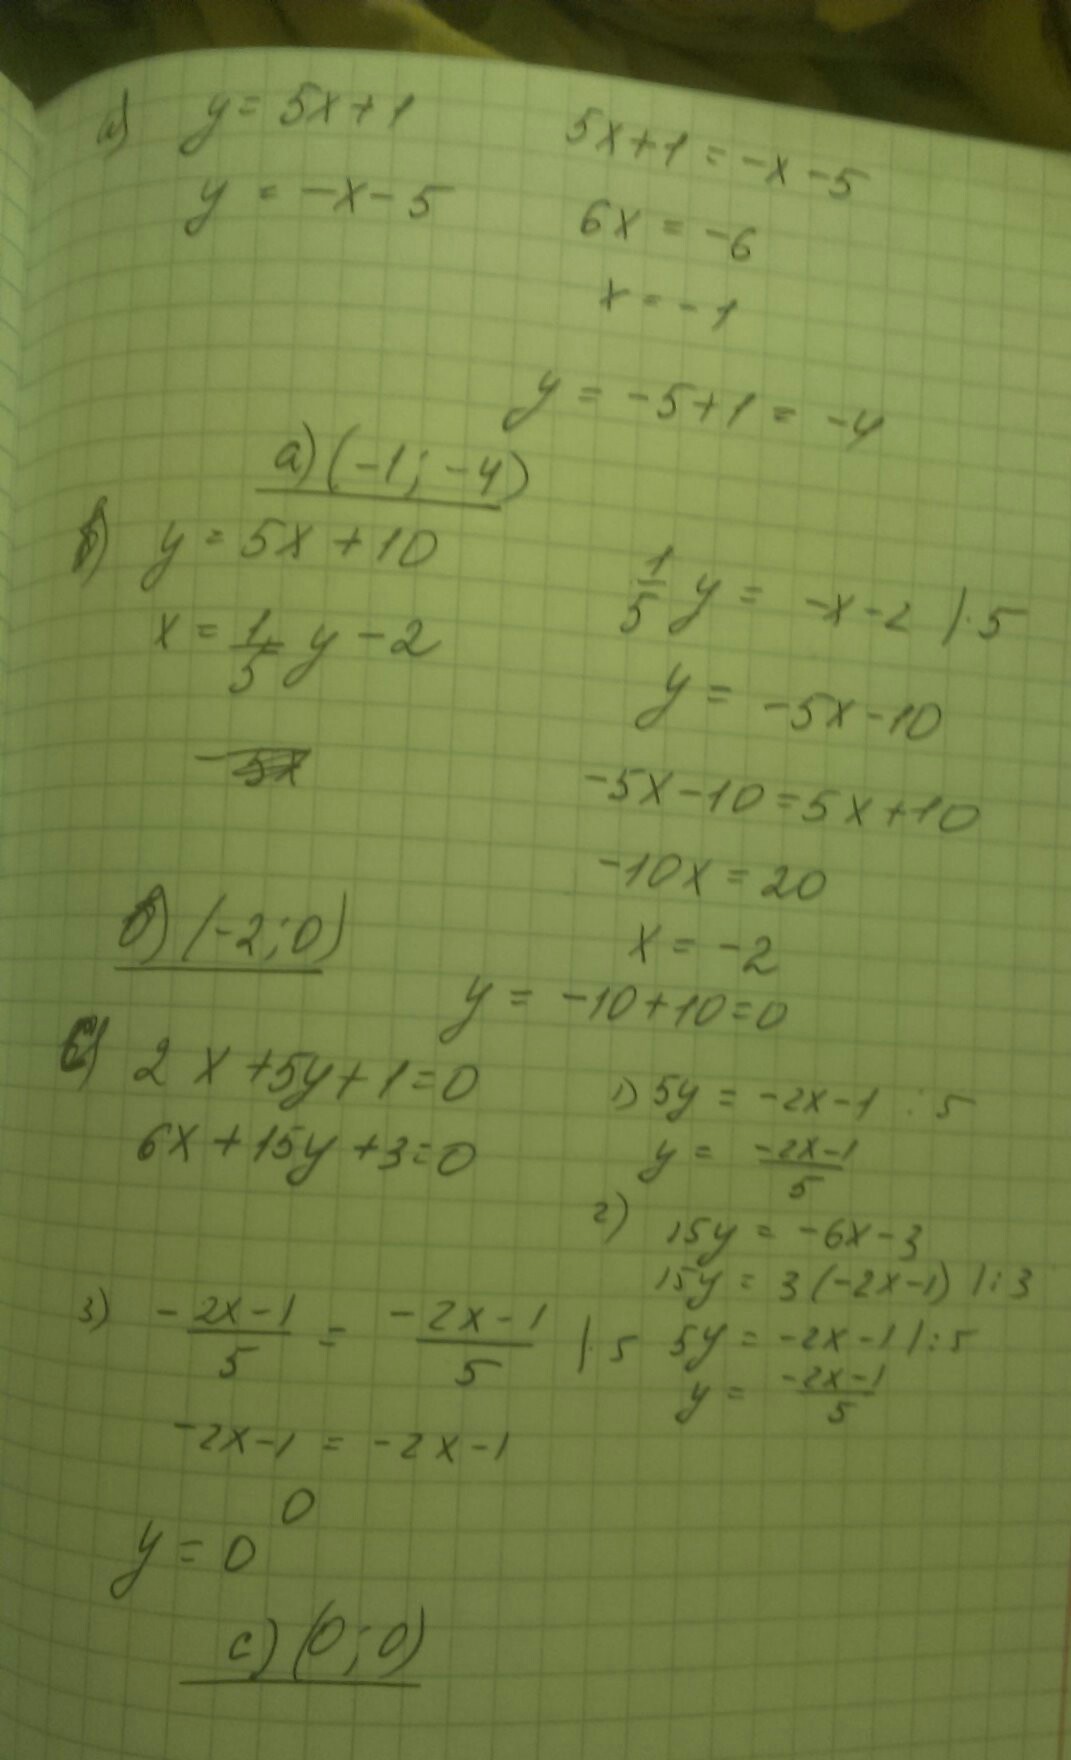 a) y = 5x + 1
y = -x - 5
5x + 1 = -x - 5
6x = -6
x = -1
y = -5 + 1 = -4
a) (-1; -4)
y = 5x + 10
x = 1/5 y - 2
1/5 y = -x - 2 | · 5
y = -5x - 10
-5x - 10 = 5x + 10
-10x = 20
x = -2
y = -10 + 10 = 0
б) (-2; 0)
c) 2x + 5y + 1 = 0
6x + 15y + 3 = 0
1) 5y = -2x - 1 : 5
y = (-2x - 1)/5
2) 15y = -6x - 3
15y = 3(-2x - 1) | : 3
5y = -2x - 1 | : 5
y = (-2x - 1)/5
3) (-2x - 1)/5 = (-2x - 1)/5 | · 5
-2x - 1 = -2x - 1
0
y = 0
c) (0; 0)